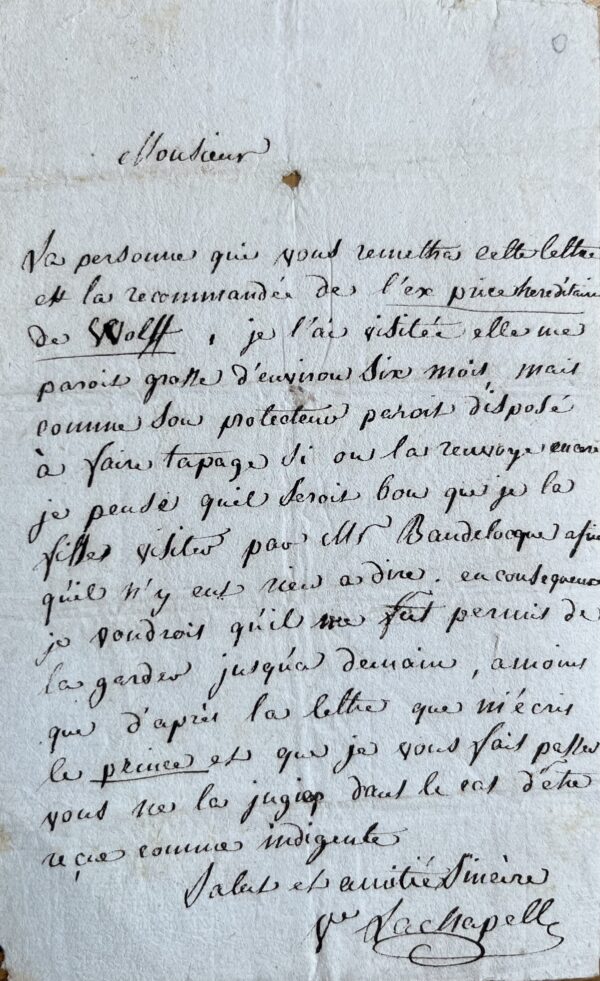 0
Monsieur
La personne qui vous remettra cette lettre
est la recommandée de l'ex price hereditaire
de Wolff, je l'ai visitée elle me
paroit grosse d'environ six mois mais
comme son protecteur paroit disposé
à faire tapage si on la renvoye encore
je pense quil seroit bon que je la
fisse visiter par Mr Baudelocque afin
quil n'y eut rien a dire. en consequence
je voudrois qu'il me fut permis de
la garder jusqu'a demain, a moins
que d'après la lettre que m'écris
le prince et que je vous fait passer
vous ne la jugiez dans le cas d'être
reçue comme indigente
Salut et amitié Sincère
Ve Lachapelle